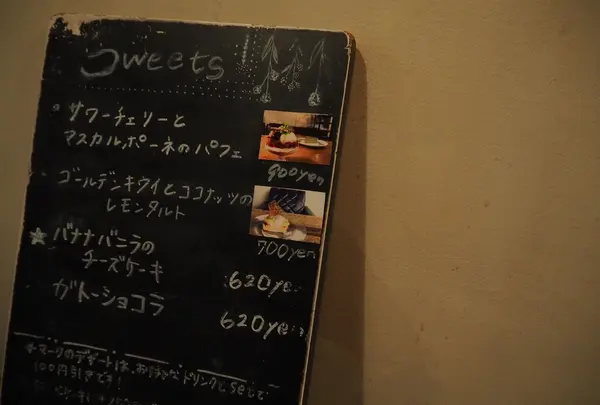 Sweets
サワーチェリーと
マスカルポーネのパフェ
900yen
ゴールデンキウイとココナッツの
レモンタルト
700yen
★バナナバニラの
チーズケーキ
620yen
ガトーショコラ
620yen
マークのデザートは、お好きなドリンクとsetで
100円引きです!